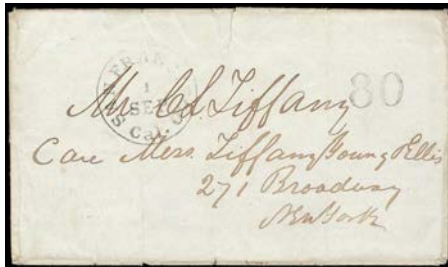 SAN FRANCISCO
1
SEP
Cal.
80
Mr. C. L. Tiffany
Care Mess. Tiffany Young Ellis
271 Broadway
New York